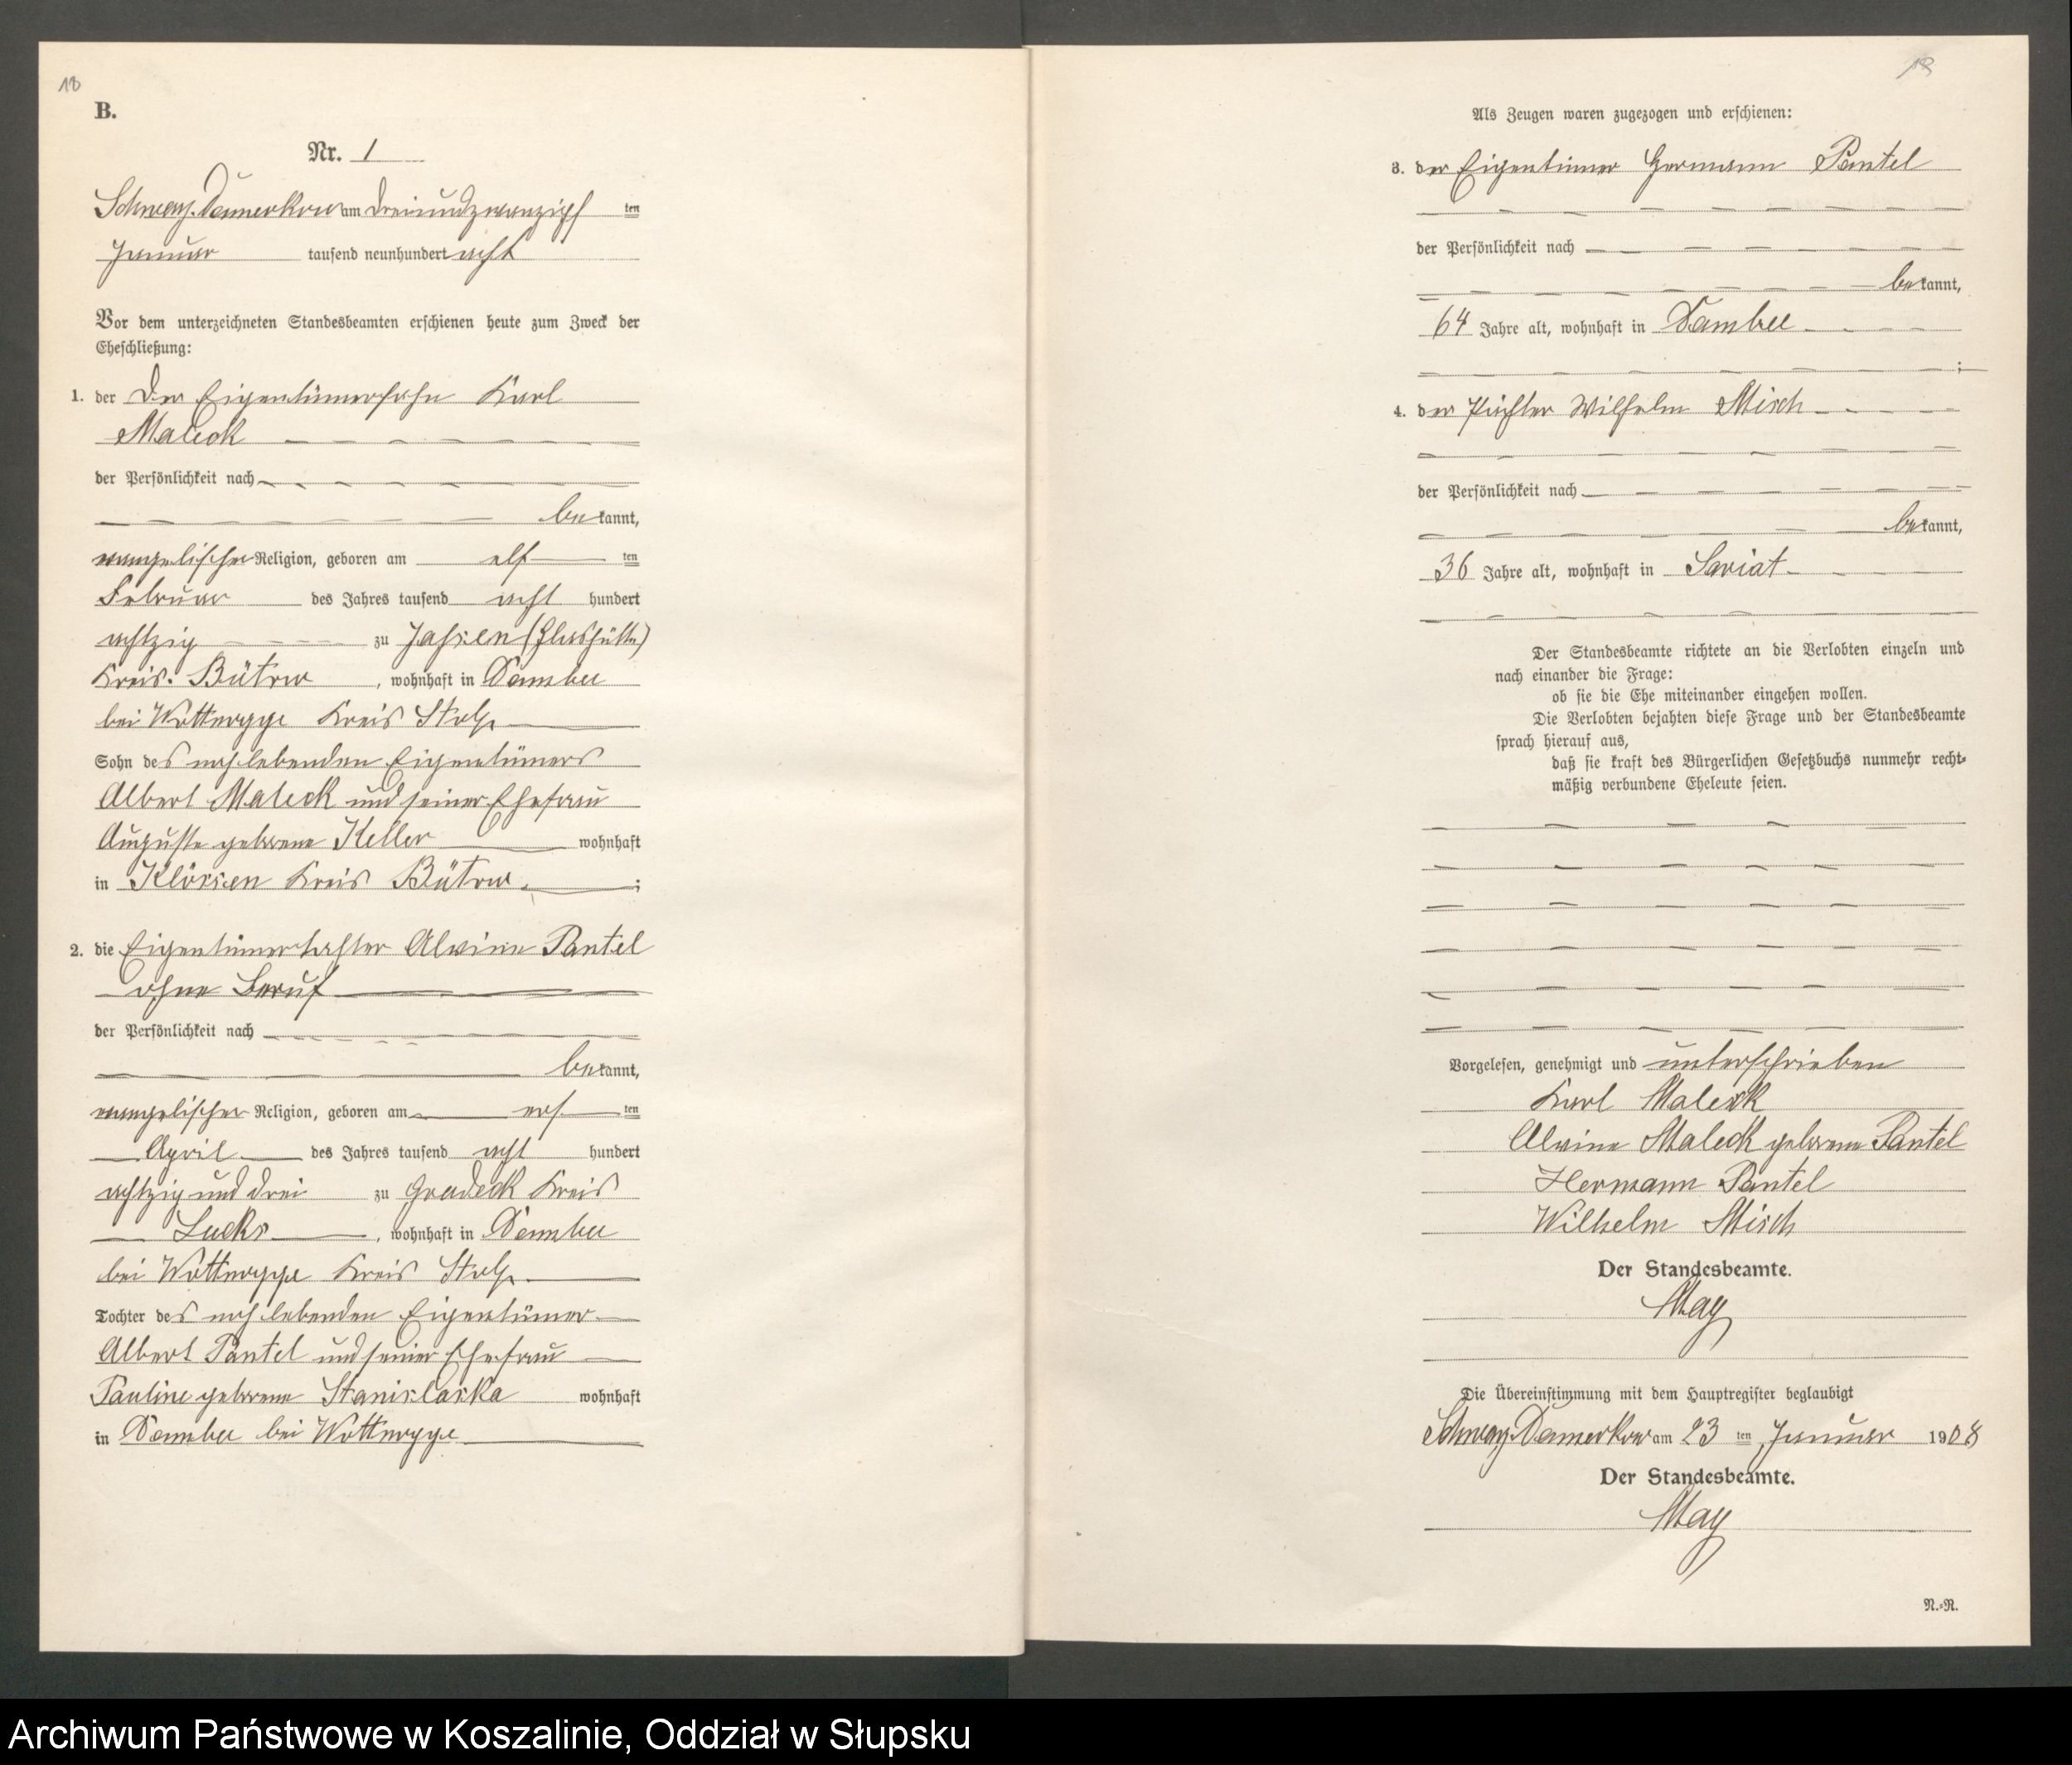 18
B.
Nr. 1
Schwarz-Damerkow am dreiundzwanzigs ten
Januar tausend neunhundert acht
Vor dem unterzeichneten Standesbeamten erschienen heute zum Zweck der
Eheschließung:
1. der Der Eigentümersohn Karl
Maleck
der Persönlichkeit nach
be kannt,
evangelischer Religion, geboren am elf ten
Februar des Jahres tausend acht hundert
achtzig zu Jassen (Glashütte)
Kreis Bütow, wohnhaft in
bei Kreis Stolp
Sohn des noch lebenden Eigentümers
Albert Maleck und seiner Ehefrau
Auguste geborene Keller wohnhaft
in Klössen Kreis Bütow ;
2. die Eigentümertochter Alwine Pantel
ohne Beruf
der Persönlichkeit nach
be kannt,
evangelischer Religion, geboren am ers ten
April des Jahres tausend acht hundert
achtzig und drei zu Gradeck Kreis
, wohnhaft in
bei Kreis Stolp
Tochter des noch lebenden Eigentümer
Albert Pantel und seiner Ehefrau
Pauline geborene Stanislaska wohnhaft
in bei
Als Zeugen waren zugezogen und erschienen:
3. der Eigentümer Hermann Pantel
der Persönlichkeit nach
be kannt,
64 Jahre alt, wohnhaft in
;
4. der Pächter Wilhelm Misch
der Persönlichkeit nach
be kannt,
36 Jahre alt, wohnhaft in Saviat
Der Standesbeamte richtete an die Verlobten einzeln und
nach einander die Frage:
ob sie die Ehe miteinander eingehen wollen.
Die Verlobten bejahten diese Frage und der Standesbeamte
sprach hierauf aus,
daß sie kraft des Bürgerlichen Gesetzbuchs nunmehr recht-
mäßig verbundene Eheleute seien.
Vorgelesen, genehmigt und unterschrieben
Karl Maleck
Alwine Maleck geborene Pantel
Hermann Pantel
Wilhelm Misch
Der Standesbeamte.
May
Die Übereinstimmung mit dem Hauptregister beglaubigt
Schwarz-Damerkow am 23 ten Januar 1908
Der Standesbeamte.
May
N.-R.
Archiwum Państwowe w Koszalinie, Oddział w Słupsku